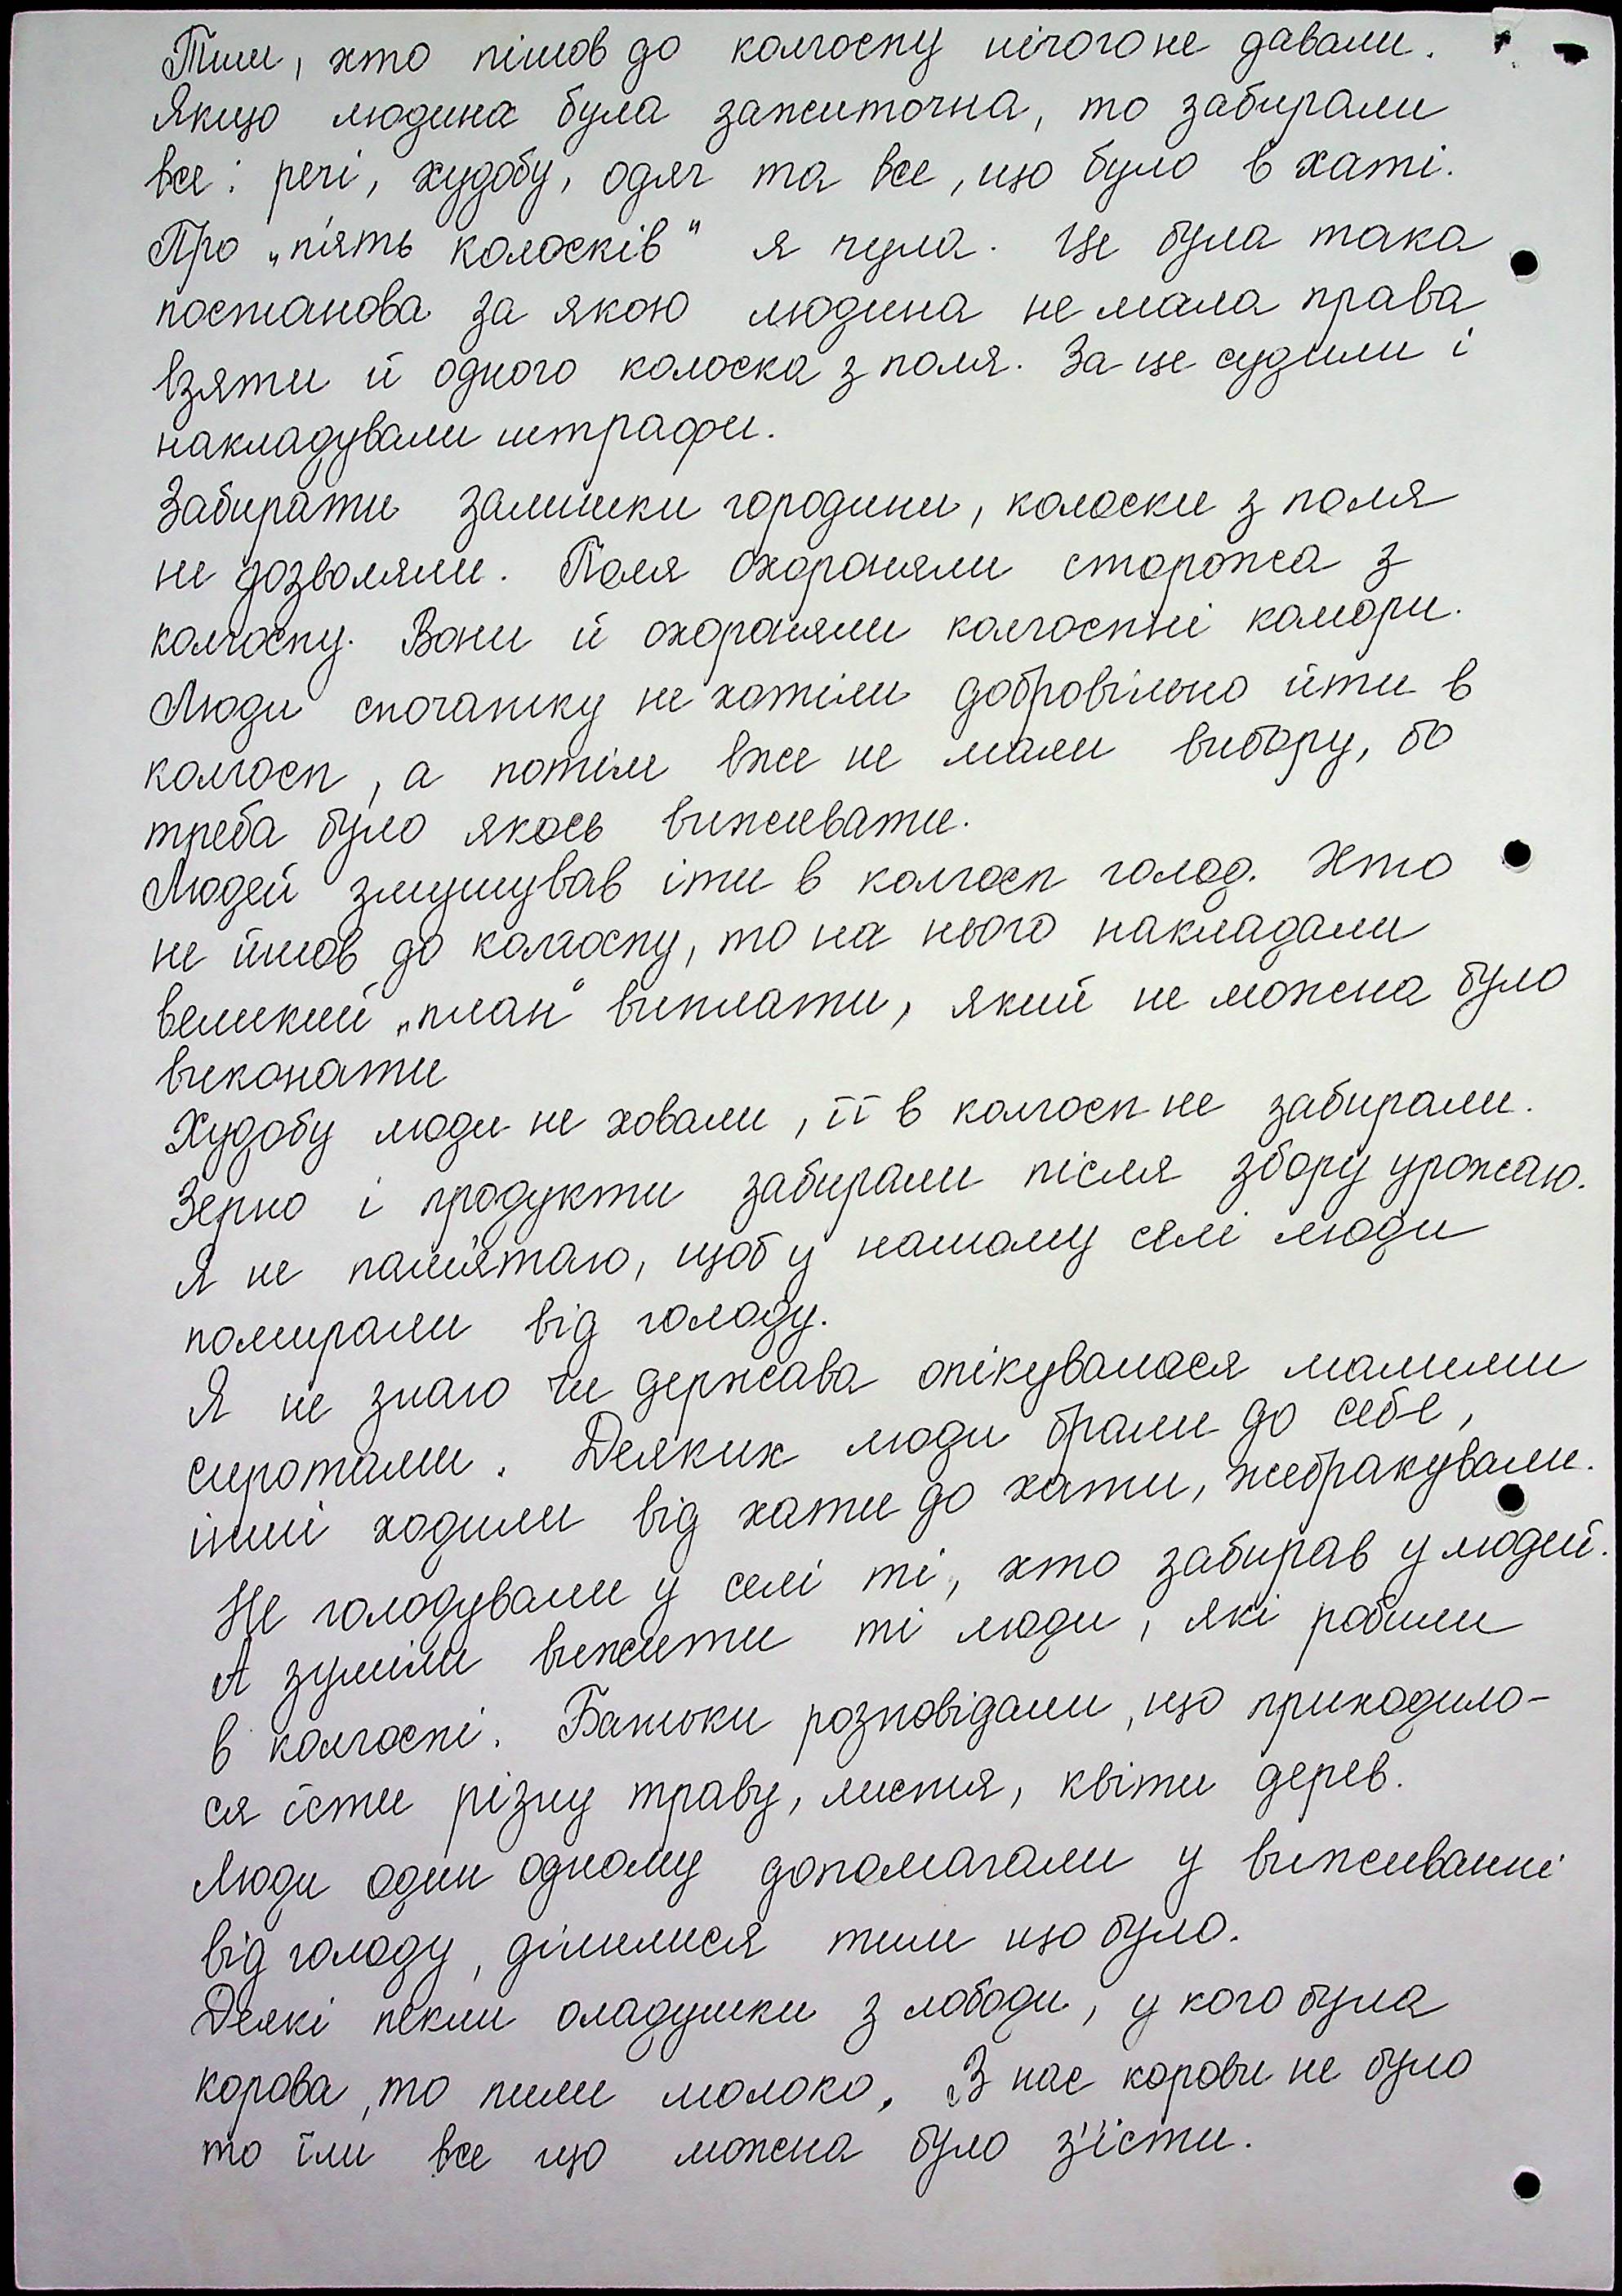 Тим, хто пішов до колгоспу нічого не давали.
Якщо людина була заможиточна, то забирали
все: речі, худобу, одяг та все, що було в хаті.
Про „п'ять колосків" я чула. Це була така
постанова за якою людина не мала права
взяти й одного колоска з поля. За це судили і
накладували штрафи.
Забирати залишки городини, колоски з поля
не дозволяли. Поля охороняли сторожа з
колгоспу. Вони й охороняли колгоспні комори.
Люди спочатку не хотіли добровільно йти в
колгосп, а потім вже не мали вибору, бо
треба було якось виживати.
Людей змушував іти в колгосп голод. Хто
не йшов до колгоспу, то на нього накладали
великий „план" виплати, який не можна було
виконати
Худобу люди не ховали, її в колгосп не забирали.
Зерно і продукти забирали після збору урожаю.
Я не пам'ятаю, щоб у нашому селі люди
помирали від голоду.
Я не знаю чи держава опікувалася малими
сиротами. Деяких люди брали до себе,
інші ходили від хати до хати, жебракували.
Не голодували у селі ті, хто забирав у людей.
А зуміли вижити ті люди, які робили
в колгоспі. Батьки розповідали, що приходило-
ся їсти різну траву, листя, квіти дерев.
Люди один одному допомагали у виживанні
від голоду, ділилися тим що було.
Деякі пекли оладушки з лободи, у кого була
корова, то пили молоко. В нас корови не було
то їли все що можна було з'їсти.